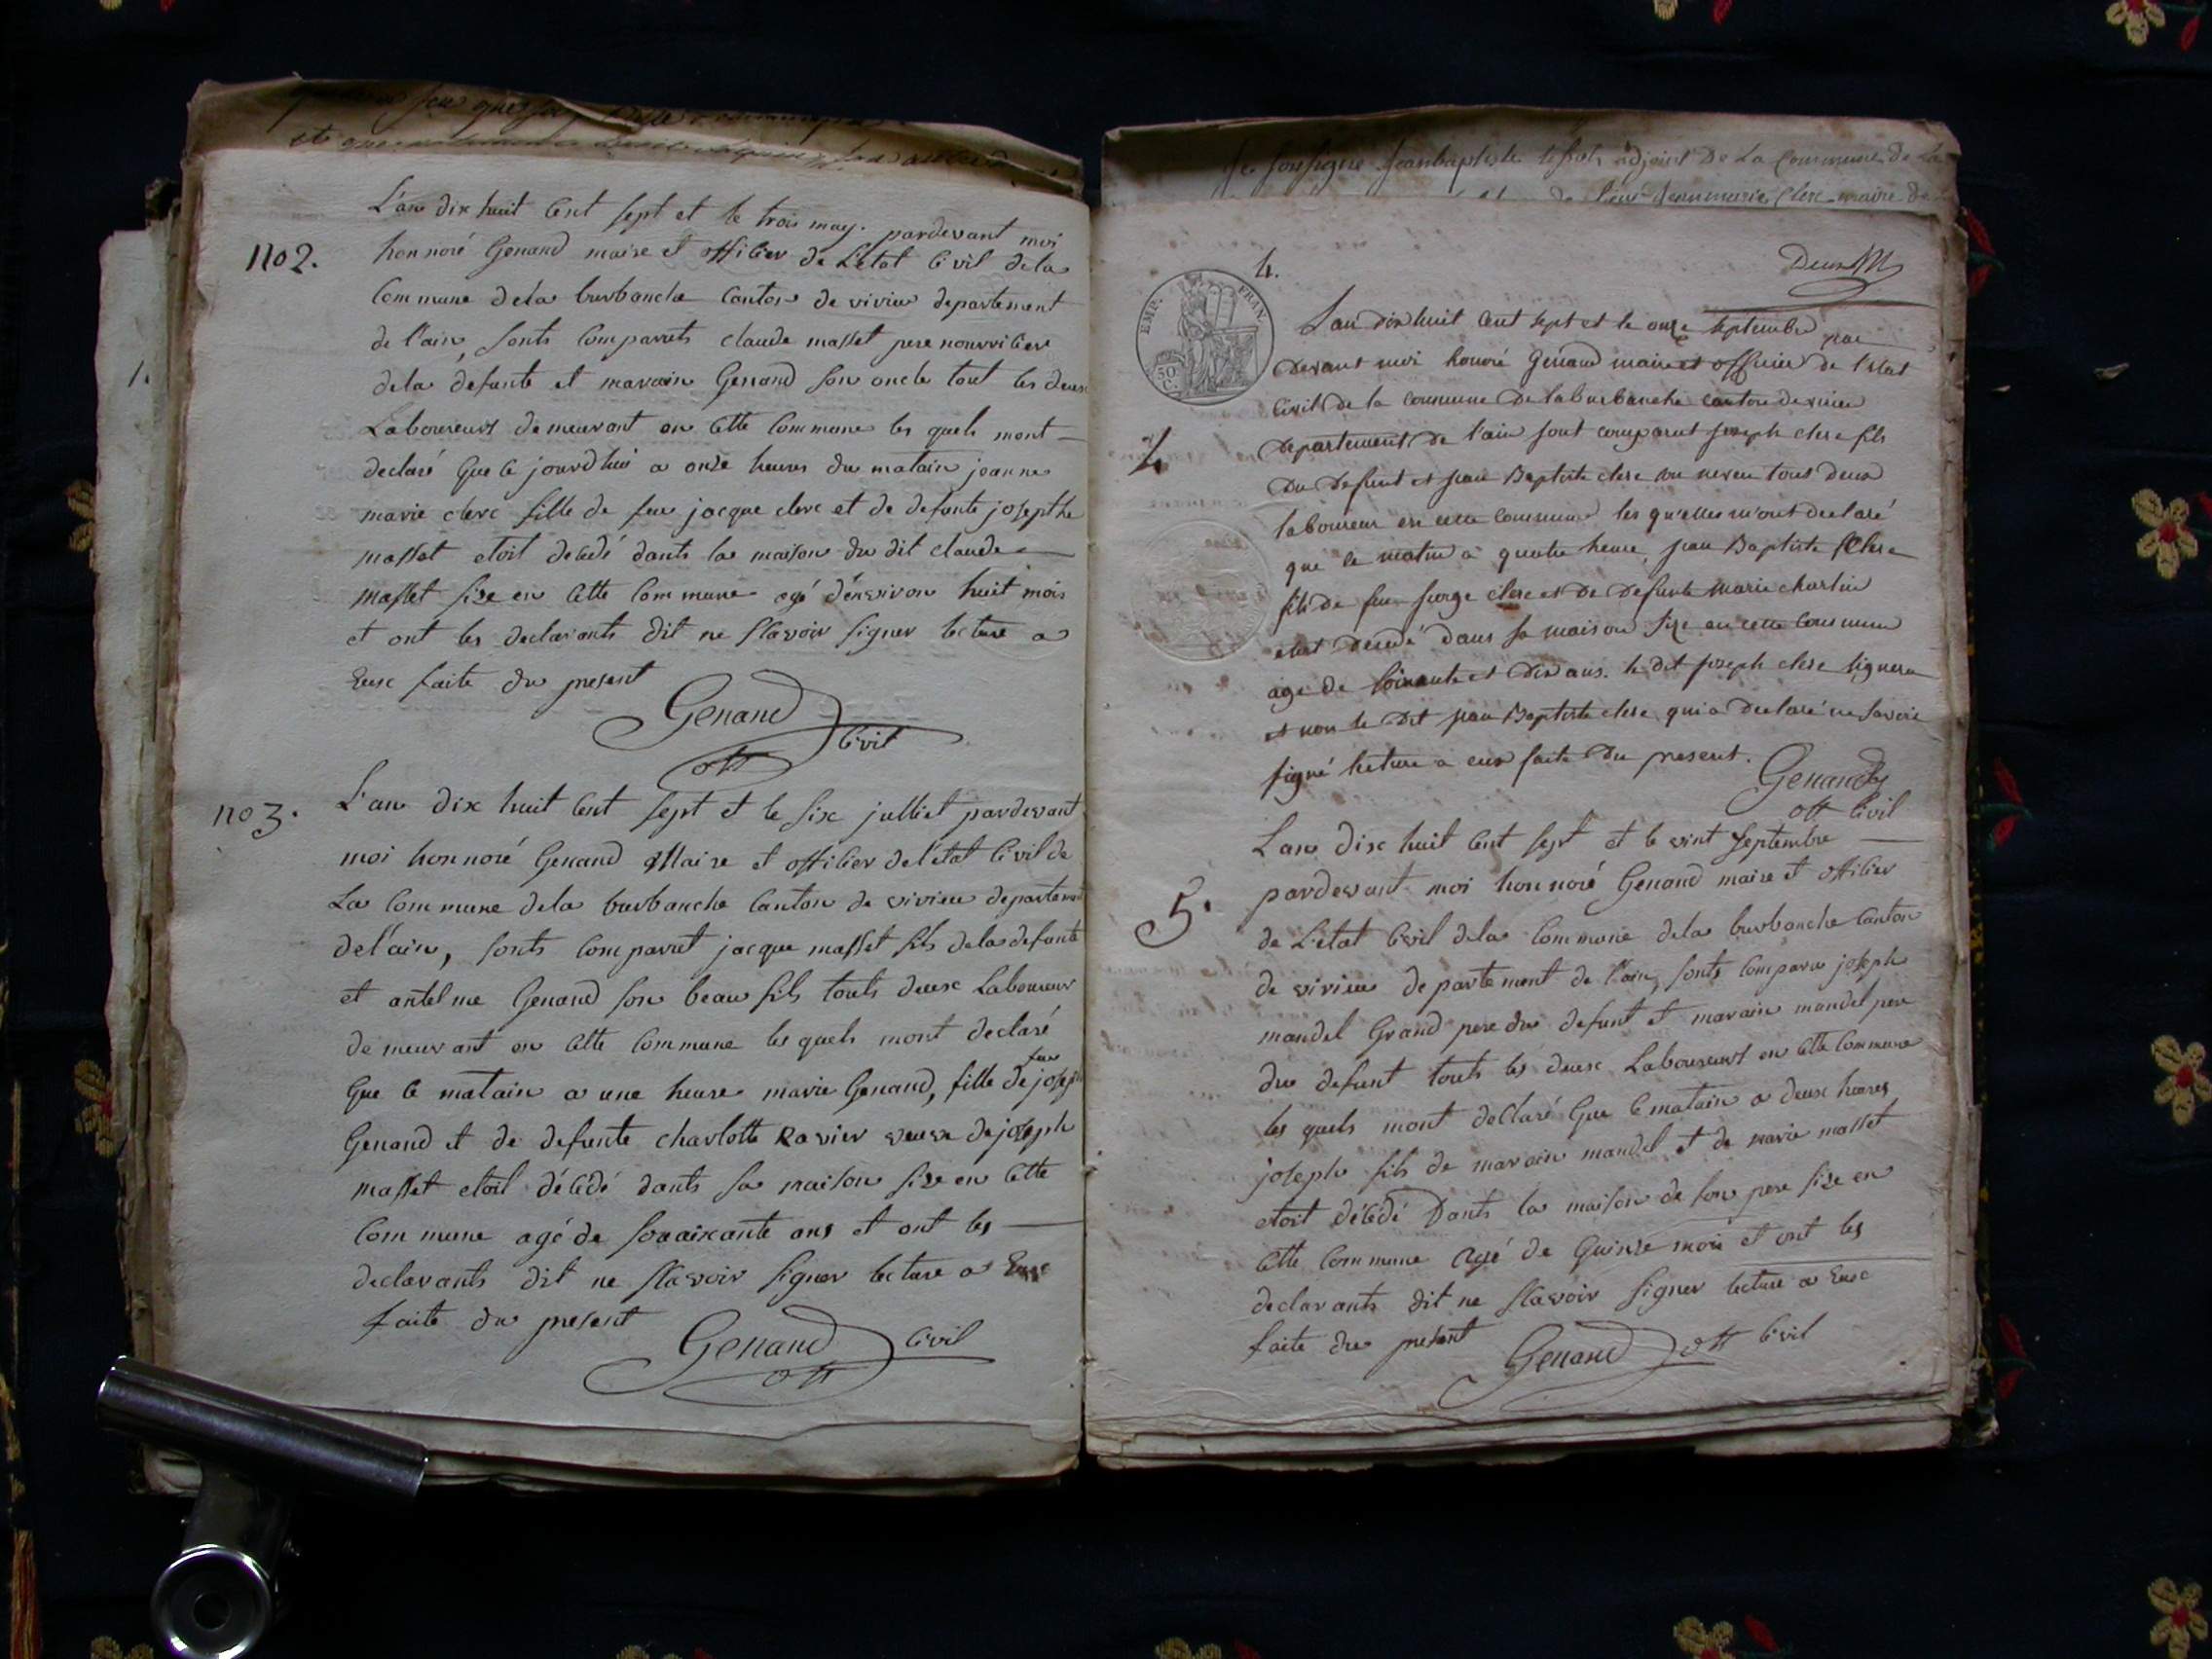 L'an dix huit cent sept et le trois may. pardevant moi
no 2.
honnoré Genand maire et offisier de L'etat civil dela
Commune dela burbanche canton de virieu departement
de l'ain, sonts comparuts claude masset pere nourricier
dela defunte et marain Genand son oncle tout les deux
Laboureurs demeurant en cette commune les quels mont
declaré que ce jourd'hui a onze heures du matain jeanne
marie clerc fille de feu jacque clerc et de defunte josepthe
masset etoit decedé dants la maison du dit claude
masset size en cette commune agé d'environ huit mois
et ont les declarants dit ne sçavoir signer lecture a
Eux faite du present
Genand
off civil
1.
no 3.
L'an dix huit cent sept et le six julliet pardevant
moi honnoré Genand Maire et offisier de l'etat civil de
La commune dela burbanche canton de virieu departement
de l'ain, sonts comparut jacque masset fils dela defunte
et antelme Genand son beau fils touts deux Laboureur
demeurant en cette commune les quels mont declaré
feu
que ce matain a une heure marie Genand, fille de joseph
Genand et de defunte charlotte Ravier veuve de joseph
masset etoit décédé dants sa maison size en cette
commune agé de souaixante ans et ont les
declarants dit ne sçavoir signer lecture a Eux
faite du present
Genand off civil
Je soussigné Jeanbaptiste adjoint De La Commune de La
jeanmarie Clerc maire de
4.
EMP. FRAN.
50 C.
Deux
L'an dix huit cent sept et le onze septembre par
devant moi honoré Genand maire et officier de l'etat
Civil de la commune de la burbanche canton de virieu
4
Departement de l'ain sont comparut joseph clerc fils
Du Defunt et jean Baptiste clerc son neveu tous deux
laboureur en cette commune les qu'elles m'ont declaré
que ce matin à quatre heure, jean Baptiste Clerc
fils de feu clerc et De Defunte Marie charlin
etoit Decedé dans sa maison size en cette commune
age de soixante et Dix ans. le dit joseph clerc signera
et non le Dit jean Baptiste clerc qui a Declaré ne savoir
signé lecture a eux faite Du present.
Genand
off civil
L'an dix huit cent sept et le vint septembre
5.
pardevant moi honnoré Genand maire et offisier
de L'etat civil dela commune dela burbanche canton
de virieu departement de l'ain, sonts comparu joseph
mandel Grand pere du defunt et marain mandel pere
du defunt touts les deux Laboureurs en cette commune
les quels mont declaré que ce matain a deux heures
joseph fils de marain mandel et de marie masset
etoit décédé Dants la maison de son pere size en
cette commune agé de quinze mois et ont les
declarants dit ne sçavoir signer lecture a Eux
faite du present
Genand off civil